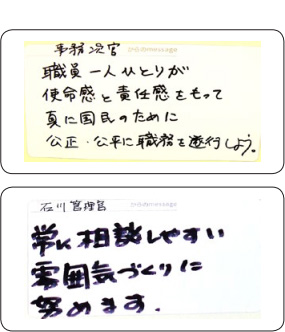 事務次官
職員一人ひとりが
使命感と責任感をもって
真に国民のために
公正・公平に職務を遂行しよう。
石川管理官
常に相談しやすい
雰囲気づくりに
努めます.